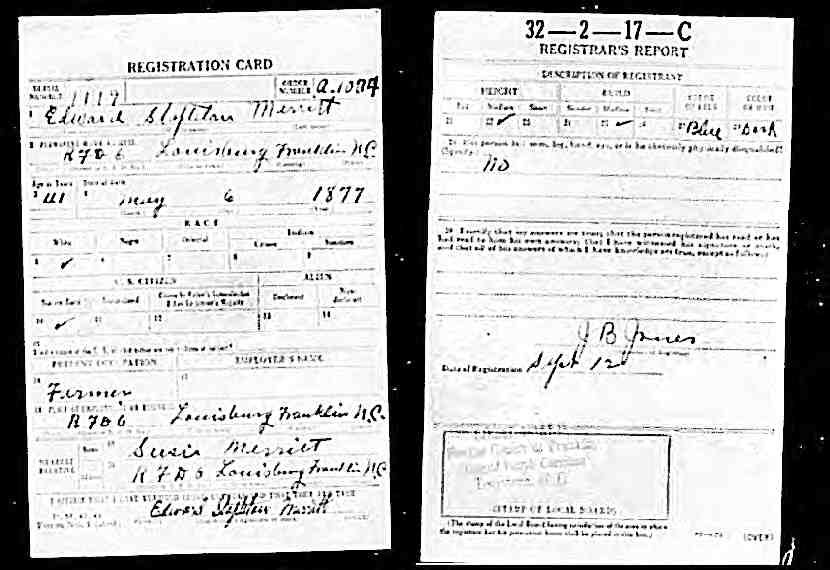 REGISTRATION CARD
SERIAL NUMBER 1119 ORDER NUMBER A.1034
1 Edward Merritt
2 PERMANENT HOME ADDRESS
R F D 6 Louisburg Franklin N.C.
Age in Years Date of Birth
3 41 4 May 6 1877
RACE
White Negro Oriental Indian
Citizen Noncitizen
5 ✓ 6 7 8 9
U. S. CITIZEN ALIEN
Native Born Naturalized Declarant Non-declarant
10 ✓ 11 12 13 14
15
PRESENT OCCUPATION EMPLOYER'S NAME
16 Farmer 17
18
R F D 6 Louisburg Franklin N.C.
NEAREST RELATIVE Name 19 Susie Merritt
Address 20 R F D 6 Louisburg Franklin N.C.
I AFFIRM THAT I HAVE VERIFIED ABOVE ANSWERS AND THAT THEY ARE TRUE
Edward Merritt
32—2—17—C
REGISTRAR'S REPORT
DESCRIPTION OF REGISTRANT
HEIGHT BUILD COLOR OF EYES COLOR OF HAIR
Tall Medium Short Slender Medium Stout
21 22 ✓ 23 24 25 ✓ 26 27 Blue 28 Dark
29 Has person lost arm, leg, hand, eye, or is he obviously physically disqualified?
(Specify.) No
30 I certify that my answers are true; that the person registered has read or has
had read to him his own answers; that I have witnessed his signature or mark,
and that all of his answers of which I have knowledge are true, except as follows:
J B Jones
Date of Registration Sept 12
STAMP OF LOCAL BOARD
(The stamp of the Local Board having jurisdiction of the area in which
the registrant has his permanent home shall be placed in this box.)
(OVER)